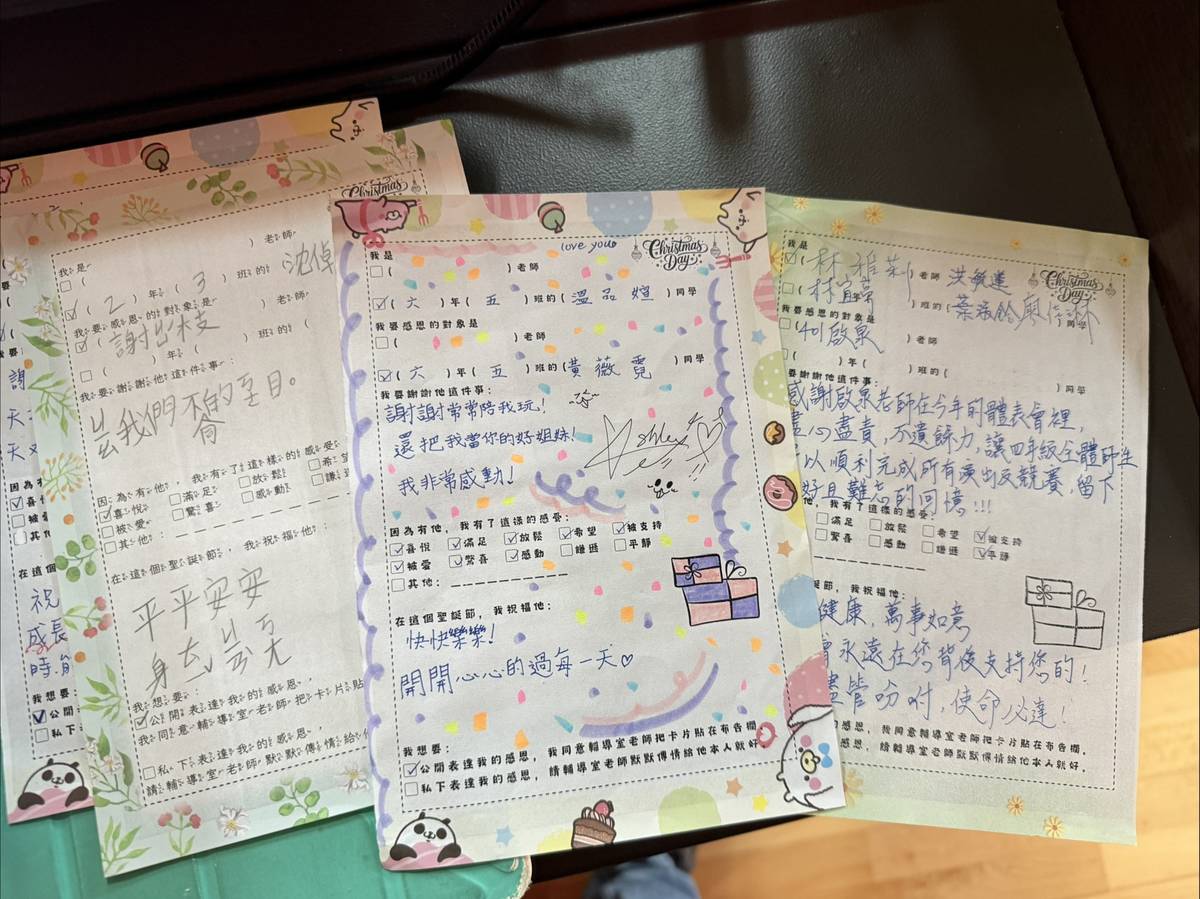 我要
謝
天
天
因為
喜
被愛
其他
在這個
祝
成長
時
我想要
公開
私下
Christmas
我是
( ) 老師
( 2 ) 年 ( 3 ) 班的
我要感恩的對象是
( 謝出枝 ) 老師
( ) 年 ( ) 班的 (
我要謝謝他這件事:
我們不 的 目。
因為有他,我有了這樣的感受:
喜悅 滿足 放鬆 希望
被愛 驚喜 感動 謙遜
其他:
在這個聖誕節,我祝福他:
平平安安
身
我想要:
公開表達我的感恩,
我同意輔導室老師把卡片貼
私下表達我的感恩,
請輔導室老師默默傳情給他
love you
Christmas
Day
我是
( ) 老師
( 六 ) 年 ( 五 ) 班的 ( 溫品媗 ) 同學
我要感恩的對象是
( ) 老師
( 六 ) 年 ( 五 ) 班的 ( 黃薇霓 ) 同學
我要謝謝他這件事:
謝謝常常陪我玩!
還把我當你的好姐妹!
我非常感動!
Ashley
因為有他,我有了這樣的感受:
喜悅 滿足 放鬆 希望 被支持
被愛 驚喜 感動 謙遜 平靜
其他:
在這個聖誕節,我祝福他:
快快樂樂!
開開心心的過每一天♡
我想要:
公開表達我的感恩,我同意輔導室老師把卡片貼在布告欄。
私下表達我的感恩,請輔導室老師默默傳情給他本人就好。
Christmas
Day
我是
( 林雅莉 ) 老師 洪敏蓮
( 年 ) 班的 ( 同學
我要感恩的對象是
( 401啟泉 ) 老師
( ) 年 ( ) 班的 ( ) 同學
我要謝謝他這件事:
感謝啟泉老師在今年的體表會裡,
盡心盡責,不遺餘力,讓四年級全體師生
以順利完成所有演出及競賽,留下
好且難忘的回憶!!!
他,我有了這樣的感受:
滿足 放鬆 希望 被支持
驚喜 感動 謙遜 平靜
誕節,我祝福他:
健康,萬事如意
永遠在您背後支持您的!
儘管吩咐,使命必達!
的感恩,我同意輔導室老師把卡片貼在布告欄。
感恩,請輔導室老師默默傳情給他本人就好。